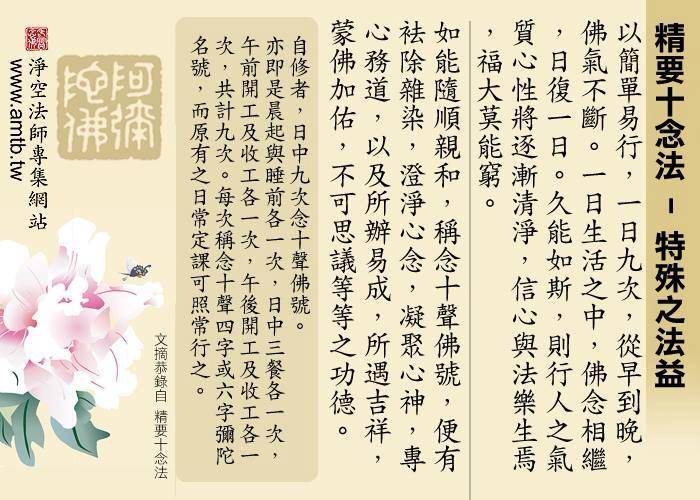 精要十念法 - 特殊之法益
以簡單易行，一日九次，從早到晚，
佛氣不斷。一日生活之中，佛念相繼
，日復一日。久能如斯，則行人之氣
質心性將逐漸清淨，信心與法樂生焉
，福大莫能窮。
如能隨順親和，稱念十聲佛號，便有
祛除雜染，澄淨心念，凝聚心神，專
心務道，以及所辦易成，所遇吉祥，
蒙佛加佑，不可思議等等之功德。
自修者，日中九次念十聲佛號。
亦即是晨起與睡前各一次，日中三餐各一次，
午前開工及收工各一次，午後開工及收工各一
次，共計九次。每次稱念十聲四字或六字彌陀
名號，而原有之日常定課可照常行之。
文摘恭錄自 精要十念法
阿彌
陀佛
淨空法師專集網站
www.amtb.tw